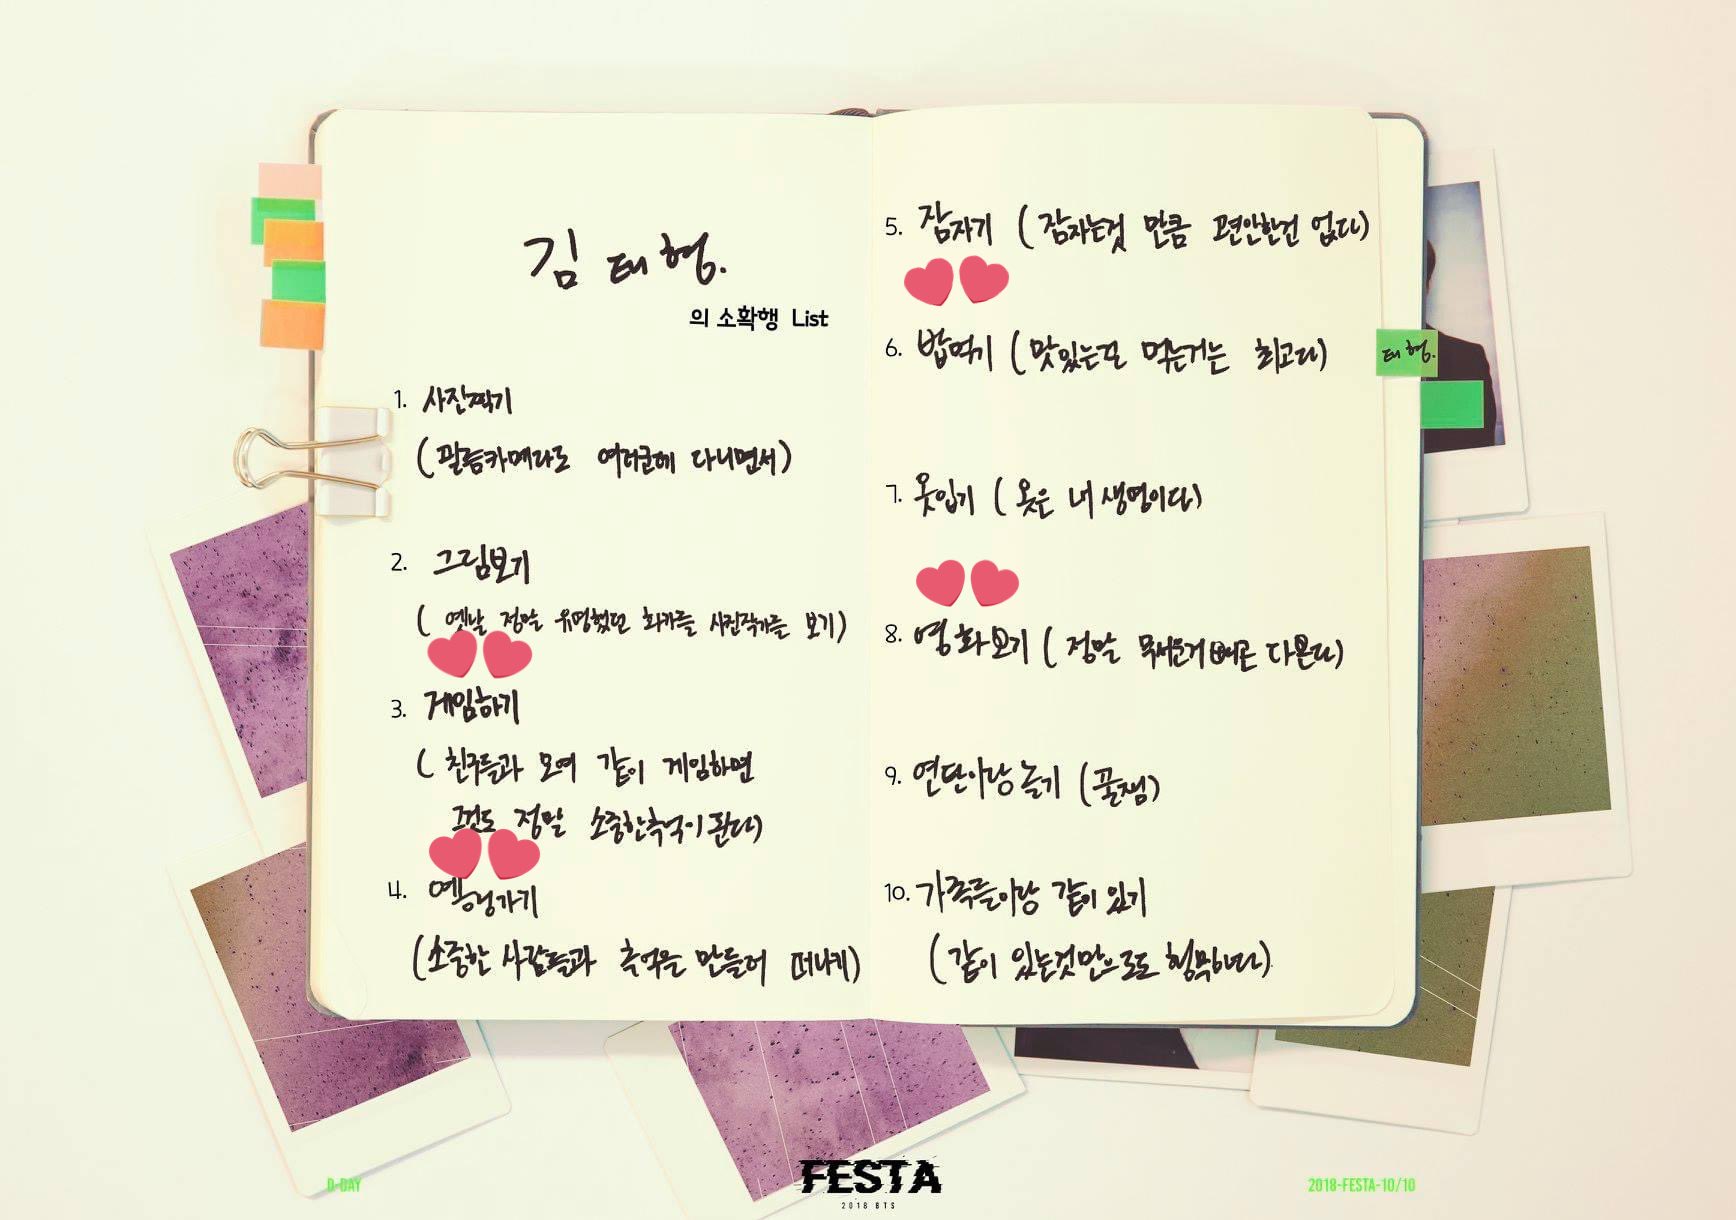 김태형.
의 소확행 List
1. 사진찍기
(필름카메라로 여러군데 다니면서)
2. 그림보기
( 옛날 정말 유명했던 화가들 사진작가들 보기)
3. 게임하기
( 친구들과 모여 같이 게임하면
그것도 정말 소중한추억이 된다)
4. 여행가기
(소중한 사람들과 추억을 만들어 떠나기)
5. 잠자기 ( 잠자는것 만큼 편안한건 없다)
6. 밥먹기 ( 맛있는 먹는거는 최고다)
태형.
7. 옷입기 ( 옷은 내 생명이다)
8. 영화보기 ( 정말 무서운거 빼곤 다본다)
9. 연탄이랑 놀기 (꿀잼)
10. 가족들이랑 같이 있기
(같이 있는것만으로도 행복하다)
D-DAY
FESTA
2018 BTS
2018-FESTA-10/10